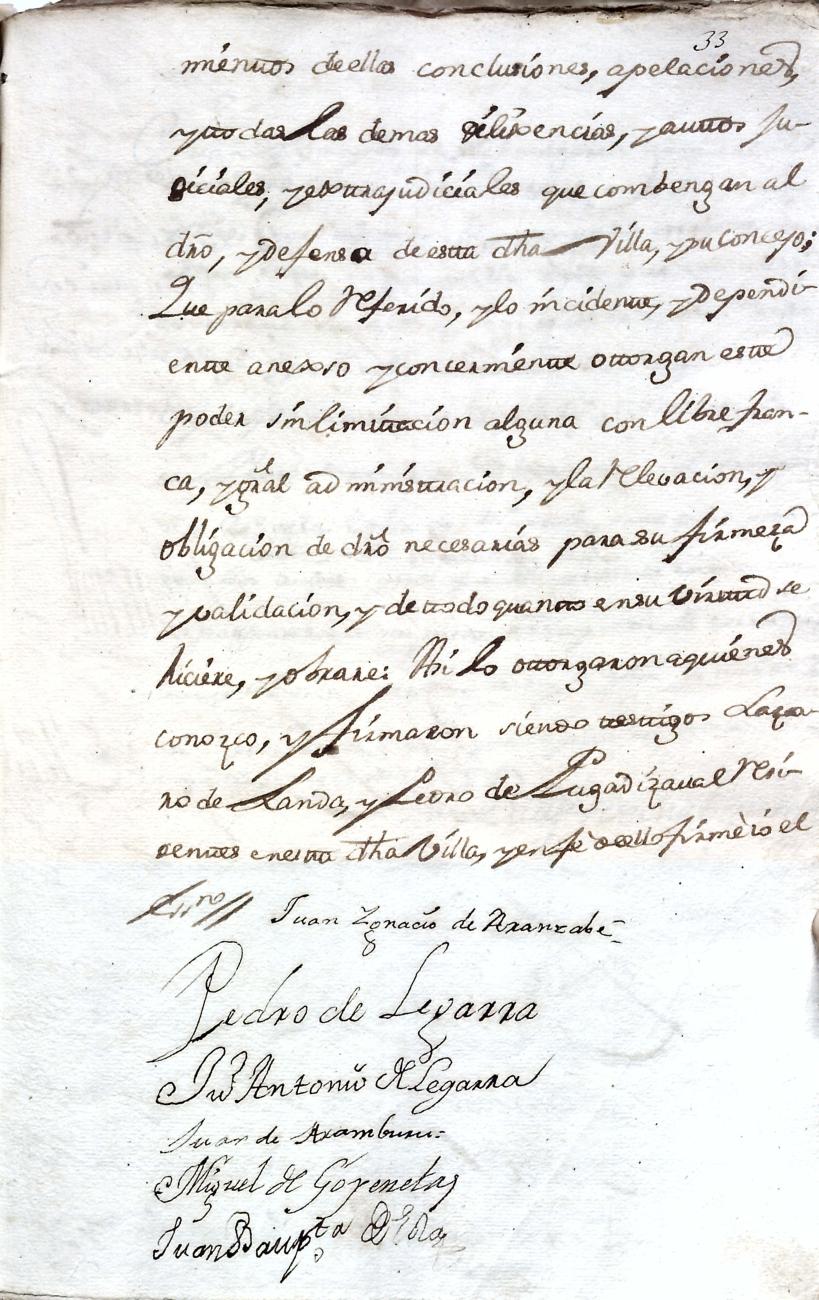 33
mientos de ellas conclusiones, apelaciones,
y todas las demas dilixencias, y autos Ju-
diciales, y extrajudiciales que combengan al
dr̃o, y defensa de esta dh̃a Villa, y su Concejo;
Que para lo Referido, y lo incidente, y dependi-
ente anexso y concerniente otorgan este
poder sin limitacion alguna con libre fran-
ca, y gral administracion, y la Relevacion, y
obligacion de dr̃o necesarias para su firmeza
y validacion, y de todo quanto en su virtud se
hiciere, y obrare: Asi lo otorgaron a quienes
conozco, y firmaron siendo testigos Laza-
ro de Landa, y Pedro de Lugadizaval Resi-
dentes en esta dh̃a Villa, y en fè de ello firmè io el
Essno//
Juan Ignacio de Aranzabe
Pedro de Legarra
Juo Antonio de Legarra
Juan de Aramburu
Miguel de Goyeneta
Juan Baupta